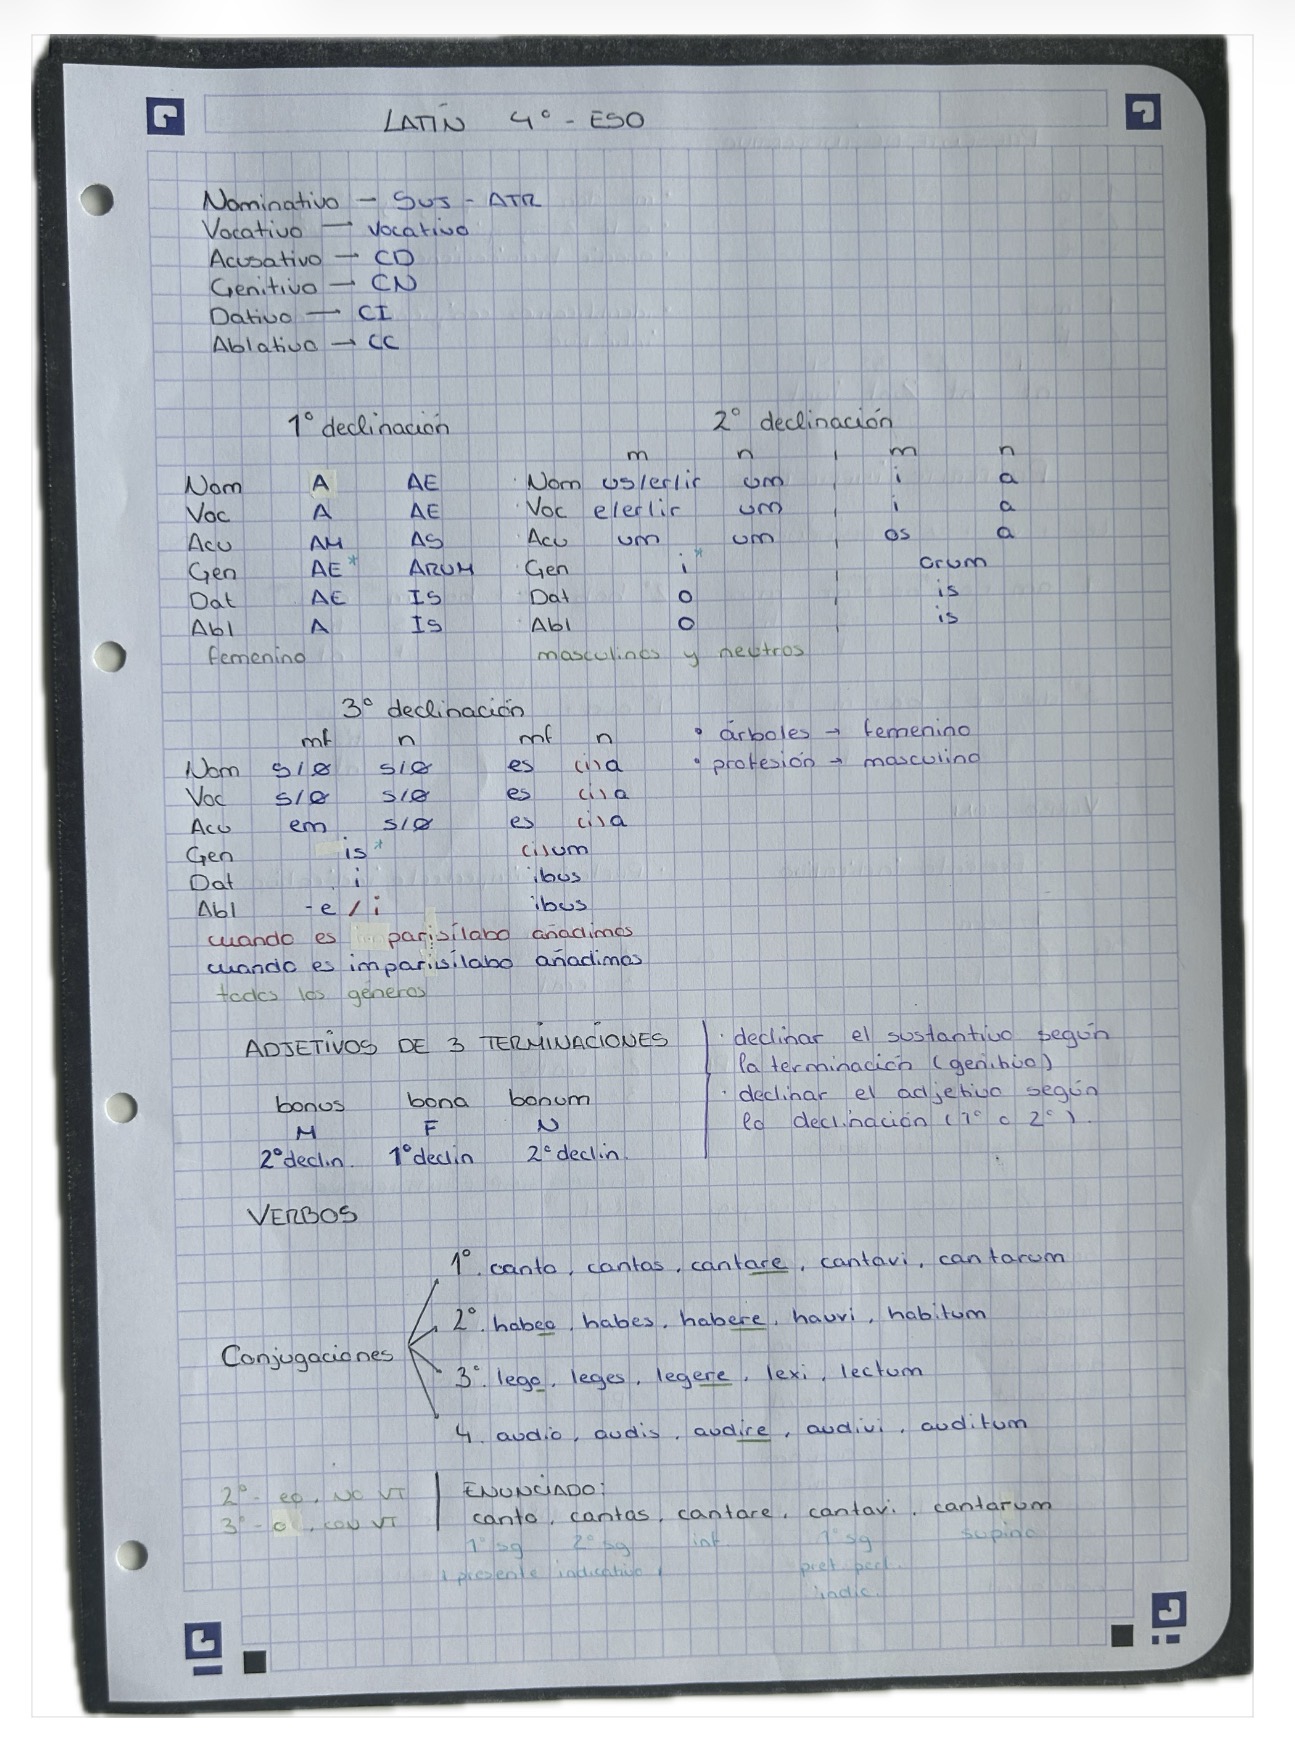 LATÍN 4º - ESO
Nominativo → SUJ - ATR
Vocativo → Vocativo
Acusativo → CD
Genitivo → CN
Dativo → CI
Ablativo → CC
1º declinación 2º declinación
m n m n
Nom A AE Nom us/er/ir um i a
Voc A AE Voc e/er/ir um i a
Acu AM AS Acu um um os a
Gen AE* ARUM Gen i* orum
Dat AE IS Dat o is
Abl A IS Abl o is
femenino masculinos y neutros
3º declinación
mf n mf n • árboles → femenino
Nom s/ø s/ø es (i)a • profesión → masculino
Voc s/ø s/ø es (i)a
Acu em s/ø es (i)a
Gen is* (i)um
Dat i ibus
Abl -e / i ibus
cuando es parisílabo añadimos
cuando es imparisílabo añadimos
todos los géneros
ADJETIVOS DE 3 TERMINACIONES · declinar el sustantivo según
la terminación (genitivo)
bonus bona bonum · declinar el adjetivo según
M F N la declinación (1º o 2º).
2º declin. 1º declin 2º declin.
VERBOS
1º. canto, cantas, cantare, cantavi, cantarum
2º. habeo, habes, habere, hauvi, habitum
Conjugaciones
3º. lego, leges, legere, lexi, lectum
4. audio, audis, audire, audivi, auditum
2º - eo, NO VT ENUNCIADO:
3º - o, CON VT canto, cantas, cantare, cantavi, cantarum
1º sg 2º sg inf 1º sg supino
presente indicativo pret. perf.
indic.